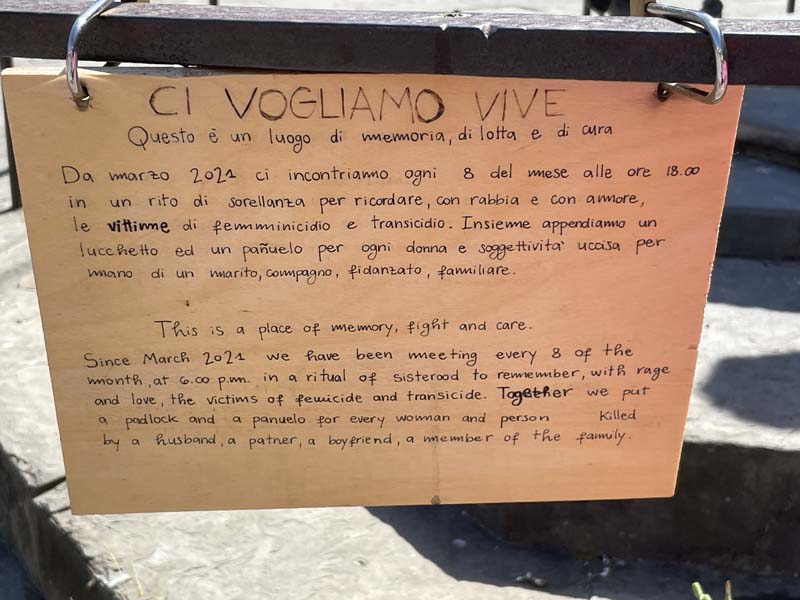 CI VOGLIAMO VIVE
Questo è un luogo di memoria, di lotta e di cura
Da marzo 2021 ci incontriamo ogni 8 del mese alle ore 18.00
in un rito di sorellanza per ricordare, con rabbia e con amore,
le vittime di femminicidio e transicidio. Insieme appendiamo un
lucchetto ed un pañuelo per ogni donna e soggettività uccisa per
mano di un marito, compagno, fidanzato, familiare.
This is a place of memory, fight and care.
Since March 2021 we have been meeting every 8 of the
month, at 6.00 p.m. in a ritual of sisterood to remember, with rage
and love, the victims of femicide and transicide. Together we put
a padlock and a panuelo for every woman and person Killed
by a husband, a patner, a boyfriend, a member of the family.